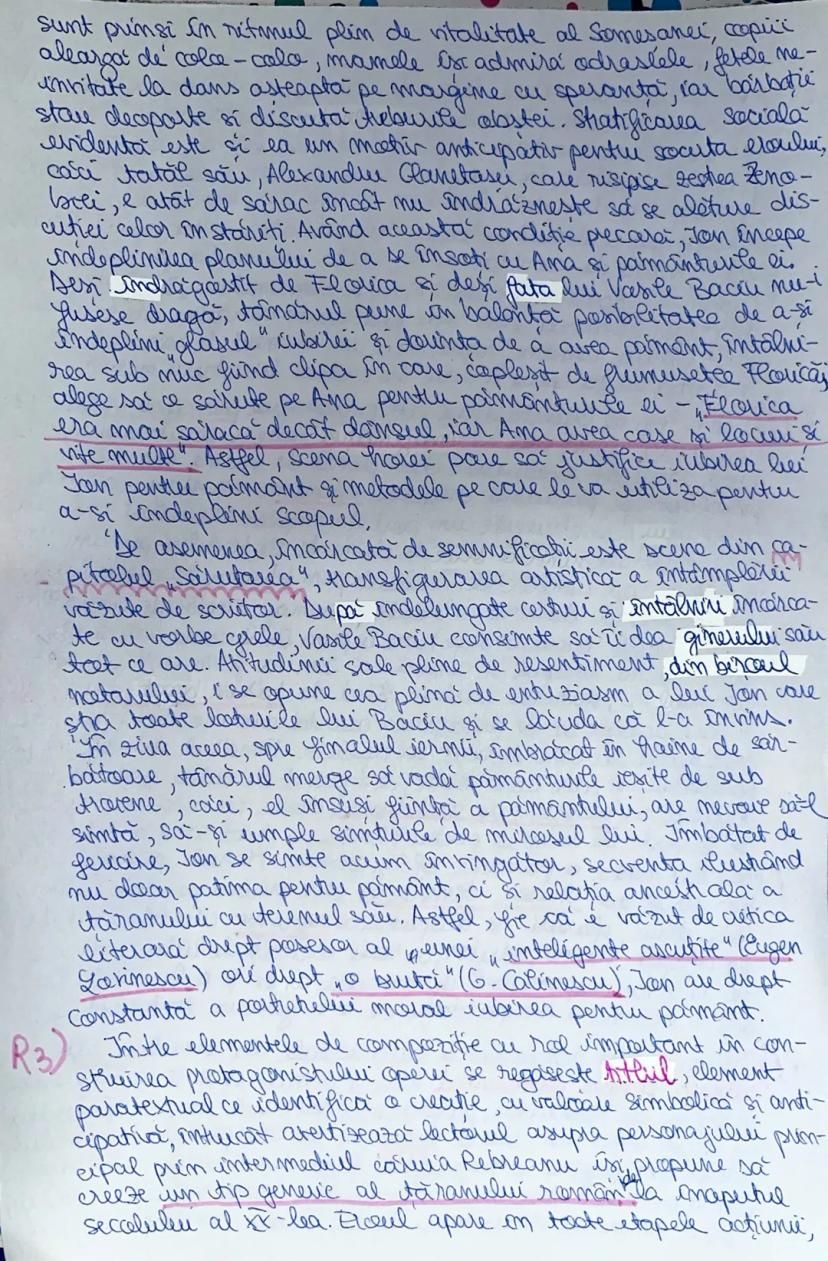 sunt prinși în ritmul plin de vitalitate al Someșanei, copiii
aleargă de colo-colo, mamele își admiră odraslele, fetele ne-
invitate la dans așteaptă pe margine cu speranță, iar bărbații
stau deoparte și discută treburile obștei. Stratificarea socială
evidentă este și ea un motiv anticipativ pentru soarta eroului,
căci tatăl său, Alexandru Glanetașu, care risipise zestrea Zeno-
biei, e atât de sărac încât nu îndrăznește să se alăture dis-
cuției celor înstăriți. Având această condiție precară, Ion începe
îndeplinirea planului de a se însoți cu Ana și pământurile ei.
Deși îndrăgostit de Florica și deși fata lui Vasile Baciu nu-i
fusese dragă, tânărul pune în balanță posibilitatea de a-și
îndeplini „glasul" iubirei și dorința de a avea pământ, întâlni-
rea sub nuc fiind clipa în care, copleșit de frumusețea Floricăi,
alege să o sărute pe Ana pentru pământurile ei - „Florica
era mai săracă decât dânsul, iar Ana avea case și locuri și
vite multe". Astfel, scena horei pare să justifice iubirea lui
Ion pentru pământ și metodele pe care le va utiliza pentru
a-și îndeplini scopul.
De asemenea, încărcată de semnificații este scena din ca-
pitolul „Sărutarea", transfigurarea artistică a întâmplării
văzute de scriitor. După îndelungate certuri și întâlniri încărca-
te cu vorbe grele, Vasile Baciu consimte să îi dea ginerului său
tot ce are. Atitudinii sale pline de resentiment, din biroul
notarului, i se opune cea plină de entuziasm a lui Ion care
știa toate loturile lui Baciu și se lăuda că l-a învins.
În ziua aceea, spre finalul iernii, îmbrăcat în haine de săr-
bătoare, tânărul merge să vadă pământurile ieșite de sub
troiene, căci, el însuși ființă a pământului, are nevoie să-l
simtă, să-și umple simțurile de mirosul lui. Îmbătat de
fericire, Ion se simte acum învingător, secvența ilustrând
nu doar patima pentru pământ, ci și relația ancestrală a
țăranului cu terenul său. Astfel, fie că e văzut de critica
literară drept posesor al „unei „inteligențe ascuțite" (Eugen
Lovinescu) ori drept „o brută" (G. Călinescu), Ion are drept
constantă a portretului moral iubirea pentru pământ.
R3) Între elementele de compoziție cu rol important în con-
struirea protagonistului operei se regăsește titlul, element
paratextual ce identifică o creație, cu valoare simbolică și anti-
cipativă, întrucât avertizează lectorul asupra personajului prin-
cipal prin intermediul căruia Rebreanu își propune să
creeze un tip generic al țăranului român de la începutul
secolului al XX-lea. Eroul apare în toate etapele acțiunii,